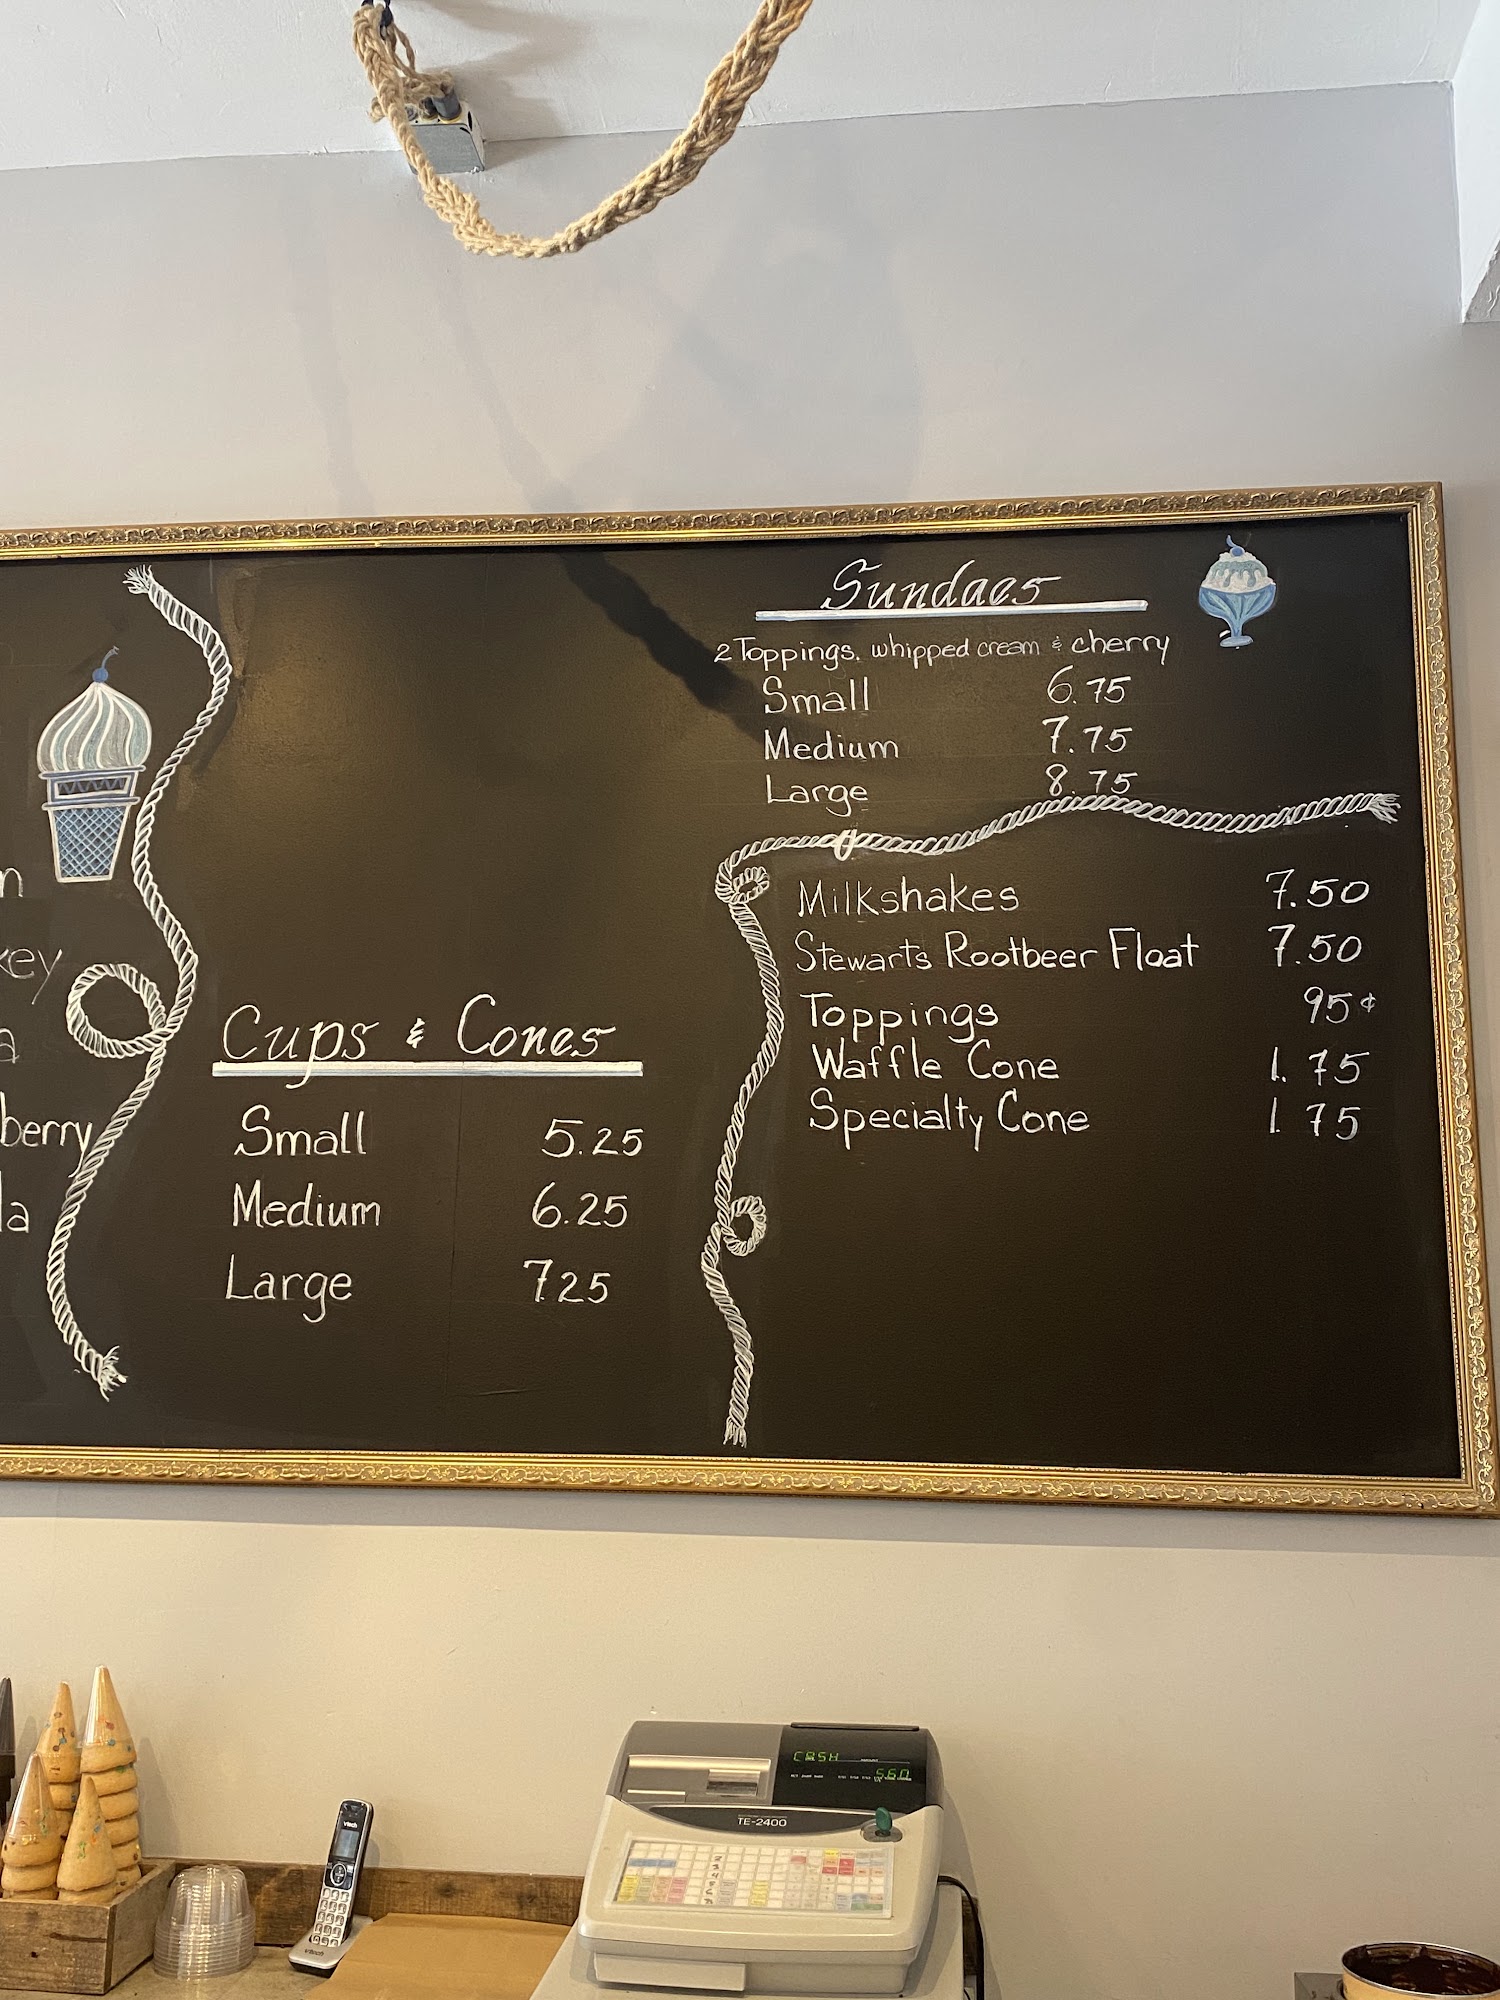 n
key
a
berry
la
Cups & Cones
Small 5.25
Medium 6.25
Large 7.25
Sundaes
2 Toppings, whipped cream & cherry
Small 6.75
Medium 7.75
Large 8.75
Milkshakes 7.50
Stewarts Rootbeer Float 7.50
Toppings 95¢
Waffle Cone 1.75
Specialty Cone 1.75
CASH
5.60
TE-2400
vtech
vtech